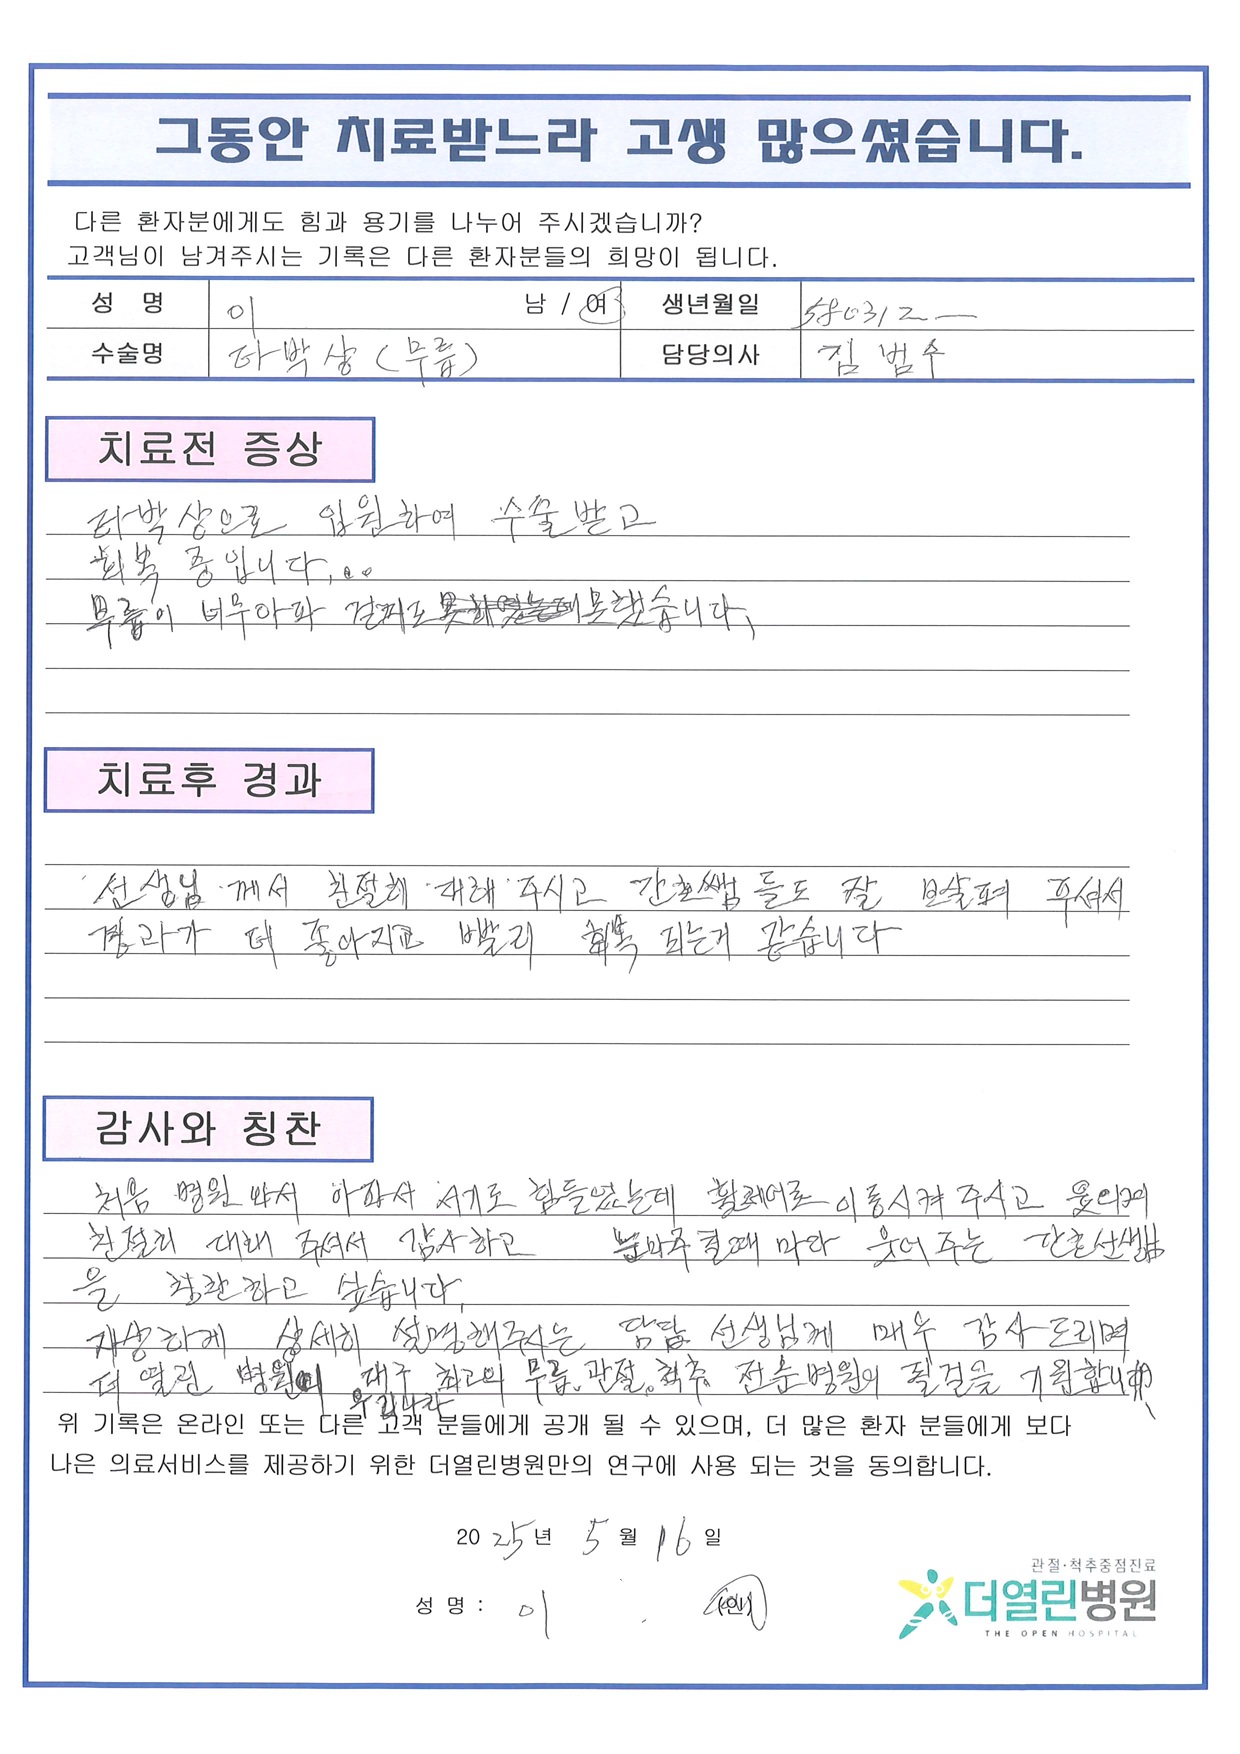 그동안 치료받느라 고생 많으셨습니다.
다른 환자분에게도 힘과 용기를 나누어 주시겠습니까?
고객님이 남겨주시는 기록은 다른 환자분들의 희망이 됩니다.
성 명 이 남 / 여 생년월일 580312
수술명 타박상 (무릎) 담당의사 김범수
치료전 증상
타박상으로 입원하여 수술받고
회복 중입니다...
무릎이 너무아파 걷지도 못했습니다,
치료후 경과
선생님께서 친절히 대해 주시고 간호쌤들도 잘 보살펴 주셔서
경과가 더 좋아지고 빨리 회복 되는거 같습니다
감사와 칭찬
처음 병원 와서 아파서 서기도 힘들었는데 휠체어로 이동시켜 주시고
친절히 대해 주셔서 감사하고 마주칠때 마다 웃어주는 간호선생님
을 칭찬하고 싶습니다,
자상하게 상세히 설명해주시는 담당 선생님께 매우 감사드리며
더 열린 병원이 대구 우리나라 최고의 무릎, 관절, 척추, 전문병원이 될걸을 기원합니다,
위 기록은 온라인 또는 다른 고객 분들에게 공개 될 수 있으며, 더 많은 환자 분들에게 보다
나은 의료서비스를 제공하기 위한 더열린병원만의 연구에 사용 되는 것을 동의합니다.
2025년 5월 16일
성 명 : 이 (인)
관절·척추중점진료
더열린병원
THE OPEN HOSPITAL